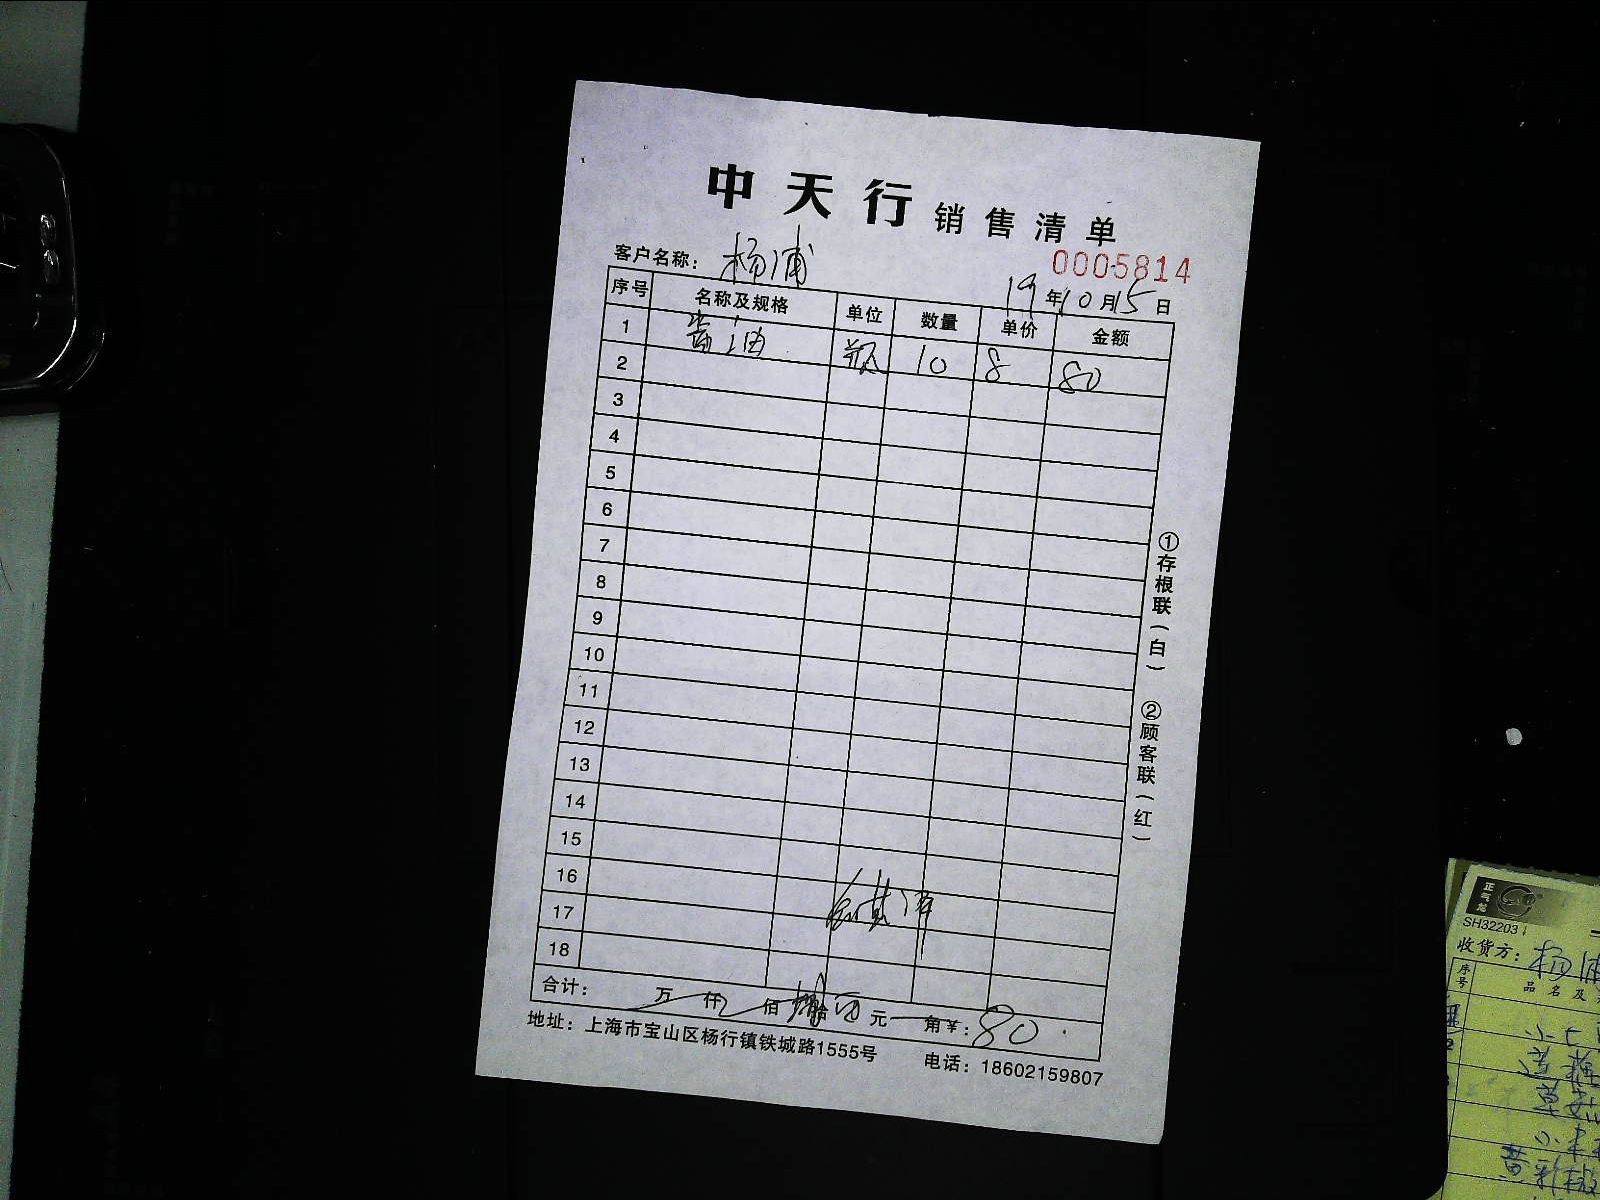 中天行 销售清单
0005814
客户名称： 杨浦 19年10月15日
序号 名称及规格 单位 数量 单价 金额
1 酱油 瓶 10 8 80
2
3
4
5
6
7
8
9
10
11
12
13
14
15
16
17
18
合计： 万 仟 佰 捌拾 元 角 ￥：80
地址：上海市宝山区杨行镇铁城路1555号 电话：18602159807
①存根联（白） ②顾客联（红）
正气龙
SH32203
收货方：杨浦
序号 品名及